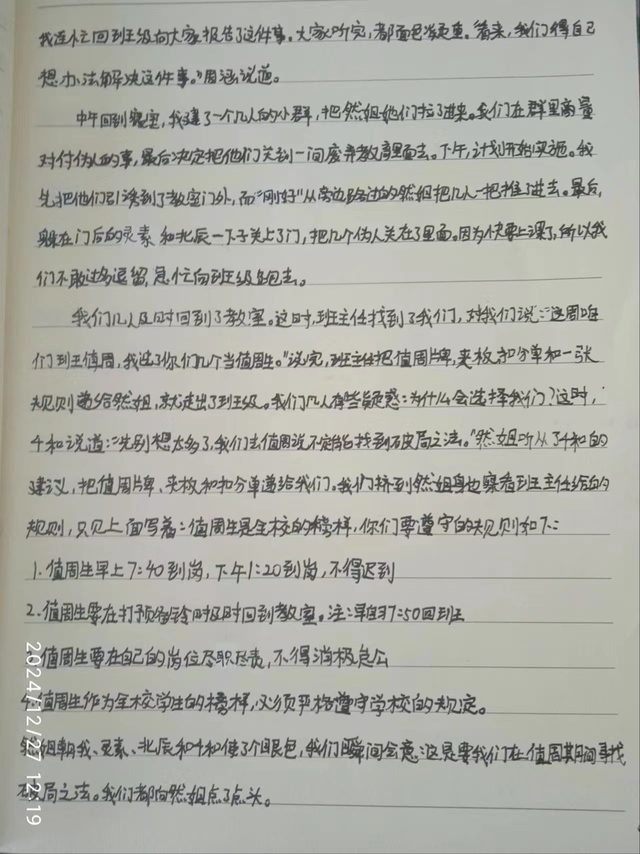 我连忙回到班级向大家报告了这件事。大家听完,都面色凝重。"看来,我们得自己
想办法解决这件事。"周涵说道。
中午回到寝室,我建了一个几人的小群,把然姐她们拉了进来。我们在群里商量
对付伪人的事,最后决定把他们关到一间废弃教室里面去。下午,计划开始实施。我
先把他们引诱到了教室门外,而"刚好"从旁边路过的然姐把几人一把推了进去。最后,
躲在门后的灵素和北辰一下子关上了门,把几个伪人关在了里面。因为快要上课了,所以我
们不敢过多逗留,急忙向班级跑去。
我们几人及时回到了教室。这时,班主任找到了我们,对我们说:"这周咱
们到班值周,我选了你们几个当值周生。"说完,班主任把值周牌,夹板,扣分单和一张
规则递给然姐,就走出了班级。我们几人有些疑惑:为什么会选择我们?这时,
千和说道:"先别想太多了,我们去值周说不定能找到破局之法。"然姐听从了千和的
建议,把值周牌、夹板和扣分单递给我们。我们挤到然姐身边察看班主任给的
规则,只见上面写着:值周生是全校的榜样,你们要遵守的规则如下:
1.值周生早上7:40到岗,下午1:20到岗,不得迟到
2.值周生要在打预备铃时及时回到教室。注:早自习7:50回班
3.值周生要在自己的岗位尽职尽责,不得消极怠公
4.值周生作为全校学生的榜样,必须严格遵守学校的规定。
然姐朝我、灵素、北辰和千和使了个眼色,我们瞬间会意:这是要我们在值周期间寻找
破局之法。我们都向然姐点了点头。
2024/12/27 12:19